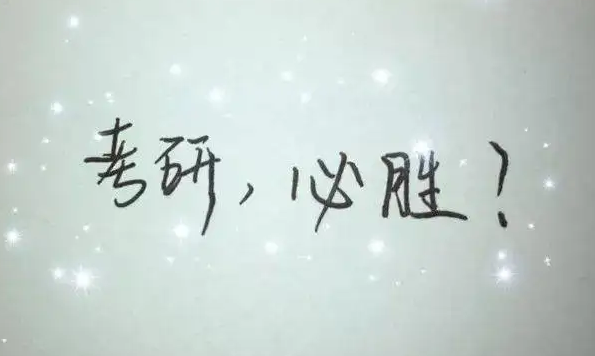 考研，必胜！